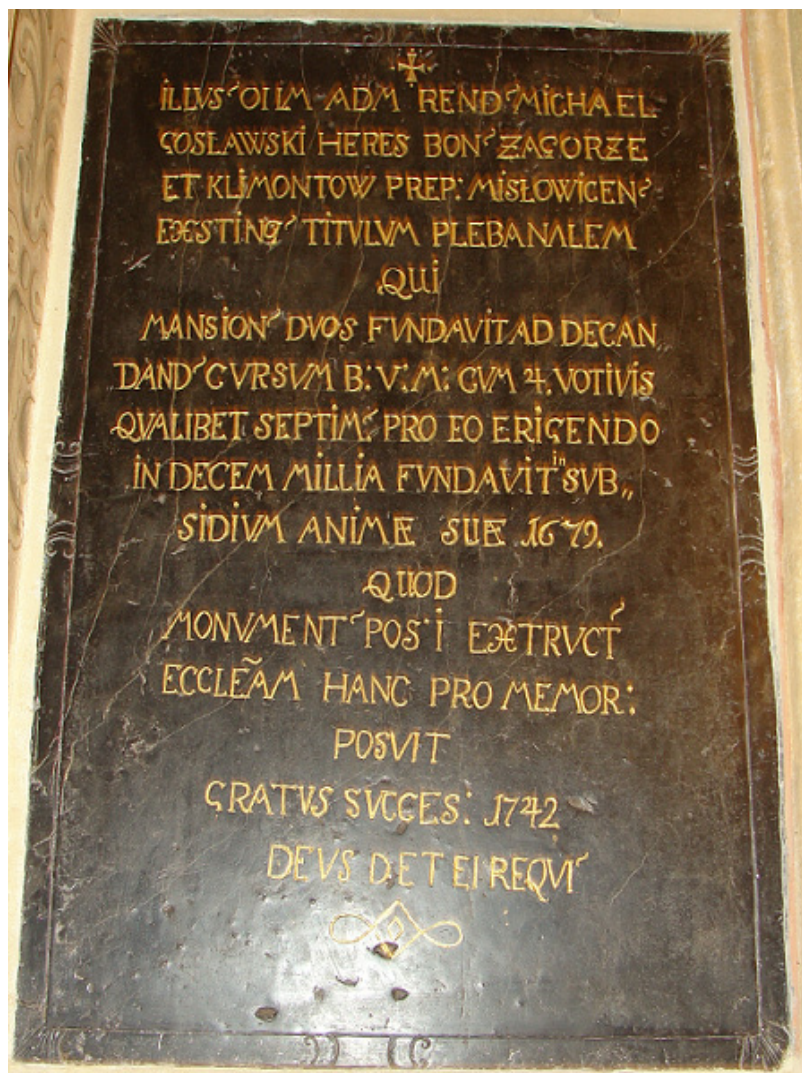 ILLVS՜ OLIM ADM REND՜ MICHAEL
GOSŁAWSKI HERES BON՜ ZAGORZE
ET KLIMONTOW PREP: MISŁOWICEN՜
EXSTING՜ TITVLVM PLEBANALEM
QUI
MANSION՜ DVOS FVNDAVIT AD DECAN
DAND՜ CVRSVM B: V: M: CVM 4. VOTIVIS
QVALIBET SEPTIM՜: PRO EO ERIGENDO
IN DECEM MILLIA FVNDAVIT in SVB„
SIDIVM ANIMÆ SUÆ 1679.
QUOD
MONVMENT՜ POS՜ I EXTRVCT՜
ECCLEÃM HANC PRO MEMOR:
POSVIT
GRATVS SVCCES: 1742
DEVS DET EI REQVI՜